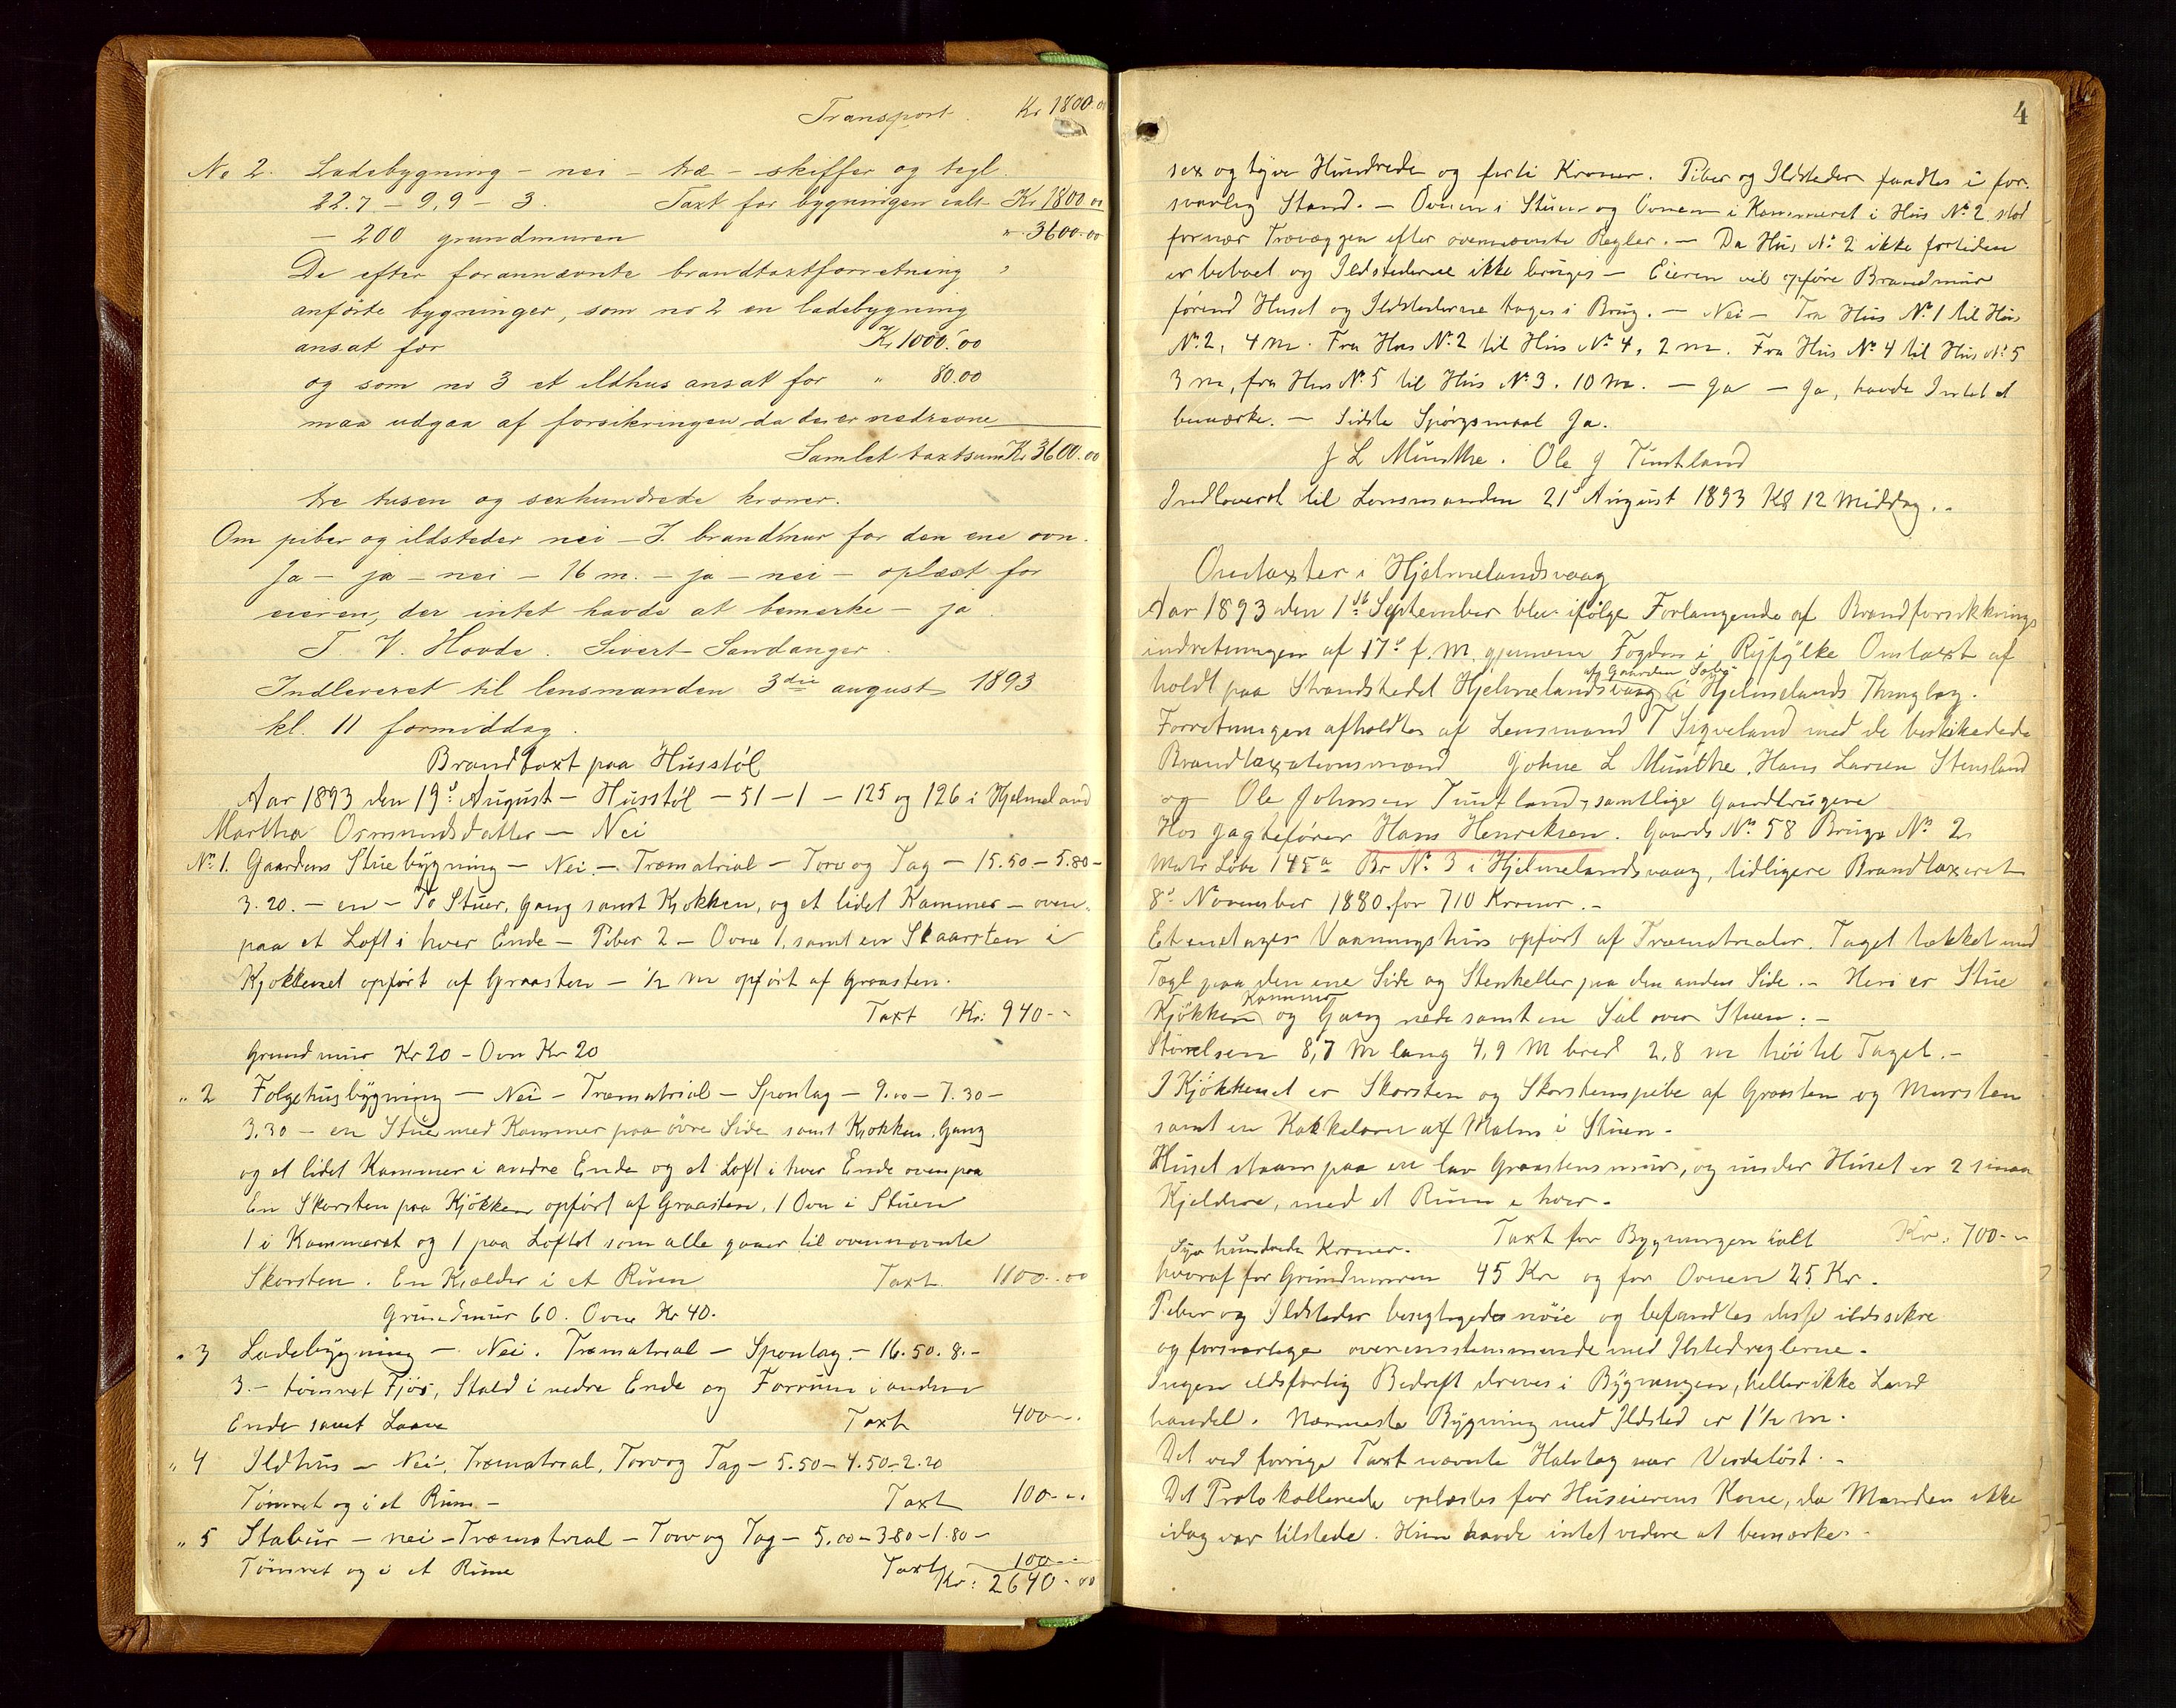 Transport. Kr 1800.00
No 2. Ladebygning – nei – træ – skiffer og tegl.
22.7 – 9,9 – 3. Taxt for bygningen ialt Kr 1800.00
– 200 grundmuren " 3600.00
De efter forannævnte brandtaxtforretning
anförte bygninger, som no 2 en ladebygning
ansat for Kr 1000.00
og som no 3 et ildhus ansat for " 80.00
maa udgaa af forsikringen da de er nedrevne
Samlet taxtsum Kr 3600.00
tre tusen og sexhundrede kroner.
Om piber og ildsteder nei – J. brandmur for den ene ovn.
Ja – ja – nei – 16 m. – ja – nei – oplæst for
eieren, der intet havde at bemerke – ja.
T. V. Hovde. Sivert Sandanger.
Indleveret til lensmanden 3die august 1893
kl. 11 formiddag.
Brandtaxt paa Husstøl
Aar 1893 den 19d August – Husstøl – 51 – 1 – 125 og 126 i Hjelmeland
Martha Osmundsdatter – Nei
No 1. Gaardens Stuebygning – Nei – Træmatrial – Torv og Tag – 15.50 – 5.80 –
3.20. – en – To Stuer, Gang samt Kjøkken, og et lidet Kammer – oven
paa et Loft i hver Ende – Piber 2 – Ovne 1, samt en Skaarsten i
Kjøkkenet opført af Graasten – ½ m opført af Graasten.
Taxt Kr: 940 –
Grundmur Kr 20 – Ovn Kr 20
" 2 Folgehusbygning – Nei – Træmatrial – Spontag – 9.00 – 7.30 –
3.30 – en Stue med Kammer paa øvre Side samt Kjøkken, Gang
og et lidet Kammer i andre Ende og et Loft i hver Ende ovenpaa
En Skorsten paa Kjøkken opført af Graasten, 1 Ovn i Stuen
1 i Kammeret og 1 paa Loftet som alle gaaer til ovennævnte
Skorsten. En Kjælder i et Rum Taxt. 1100.00
Grundmur 60. Ovne Kr 40.
" 3 Ladebygning – Nei. Træmatrial – Spontag. – 16.50. 8. –
3. – tømret Fjøs, Stald i nedre Ende og Forrum i anden
Ende samt Laave Taxt 400 –
" 4 Ildhus – Nei, Træmatrial, Torv og Tag – 5.50 – 4.50 – 2.20
Tømret og i et Rum – Taxt 100 –
" 5 Stabur – nei – Træmatrial – Torv og Tag – 5.00 – 3.80 – 1.80 –
Tømret og i et Rum Taxt 100 –
Kr: 2640.00
4
sex og tyve Hundrede og forti Kroner. Piber og Ildsteder fandtes i for-
svarlig Stand. – Ovnen i Stuen og Ovnen i Kammeret i Hus No 2 stod
fornær Trævæggen efter ovennævnte Regler. – Da Hus No 2 ikke fortiden
er beboet og Ildstederne ikke bruges – Eieren vil opføre Brandmur
førend Huset og Ildstederne tages i Brug. – Nei – Fra Hus No 1 til Hus
No 2, 4 m. Fra Hus No 2 til Hus No 4, 2 m. Fra Hus No 4 til Hus No 5
3 m, fra Hus No 5 til Hus No 3. 10 m. – Ja – Ja, havde Intet at
bemærke. – Sidste Spørgsmaal Ja.
J L Munthe. Ole J Tuntland
Indleveret til Lensmanden 21d August 1893 Kl 12 Middag. –
Omtaxter i Hjelmelandsvaag
Aar 1893 den 1ste September blev ifølge Forlangende af Brandforsikkrings
indretningen af 17d f. M. gjennem Fogden i Ryfylke Omtaxt af
af Gaarden
holdt paa Strandstedet Hjelmelandsvaag i Hjelmelands Thinglag.
Forretningen afholdtes af Lensmand T Sigveland med de beskikkede
Brandtaxationsmænd Johne L Munthe, Hans Larsen Stensland
og Ole Johnsen Tuntland, samtlige Gaardbrugere
Hos Jagtefører Hans Henriksen. Gaards No 58 Brugs No 2
Matr Løbe 145a Br No 3 i Hjelmelandsvaag, tidligere Brandtaxeret
8d November 1880 for 710 Kroner. –
Et enetages Vaaningshus opført af Træmatrialer. Taget tækket med
Tagl paa den ene Side og Stenheller paa den anden Side. – Heri er Stue
Kammer
Kjøkken og Gang nede samt en Sal over Stuen. –
Størrelsen 8,7 M lang 4,9 M bred 2,8 m høi til Taget. –
I Kjøkkenet er Skorsten og Skorstenspibe af Graasten og Mursten
samt en Kakkelovn af Malm i Stuen –
Huset staar paa en lav Graastensmur, og under Huset er 2 smaa
Kjeldre, med et Rum i hver –
Taxt for Bygningen ialt Kr. 700 –
Syv hundrede Kroner –
hvoraf for Grundmuren 45 Kr og for Ovnen 25 Kr.
Piber og Ildsteder besigtigedes nøie og befandtes disse ildssikre
og forsvarlige overensstemmende med Ilstedreglerne –
Ingen ildsfarlig Bedrift drives i Bygningen, heller ikke Land
handel. Nærmeste Bygning med Ildsted er 1½ m.
Det ved forrige Taxt nævnte Halvtag var Verdiløst. –
Det Protokollerede oplæstes for Huseierens Kone, da Manden ikke
idag var tilstede. Hun havde intet videre at bemærke –